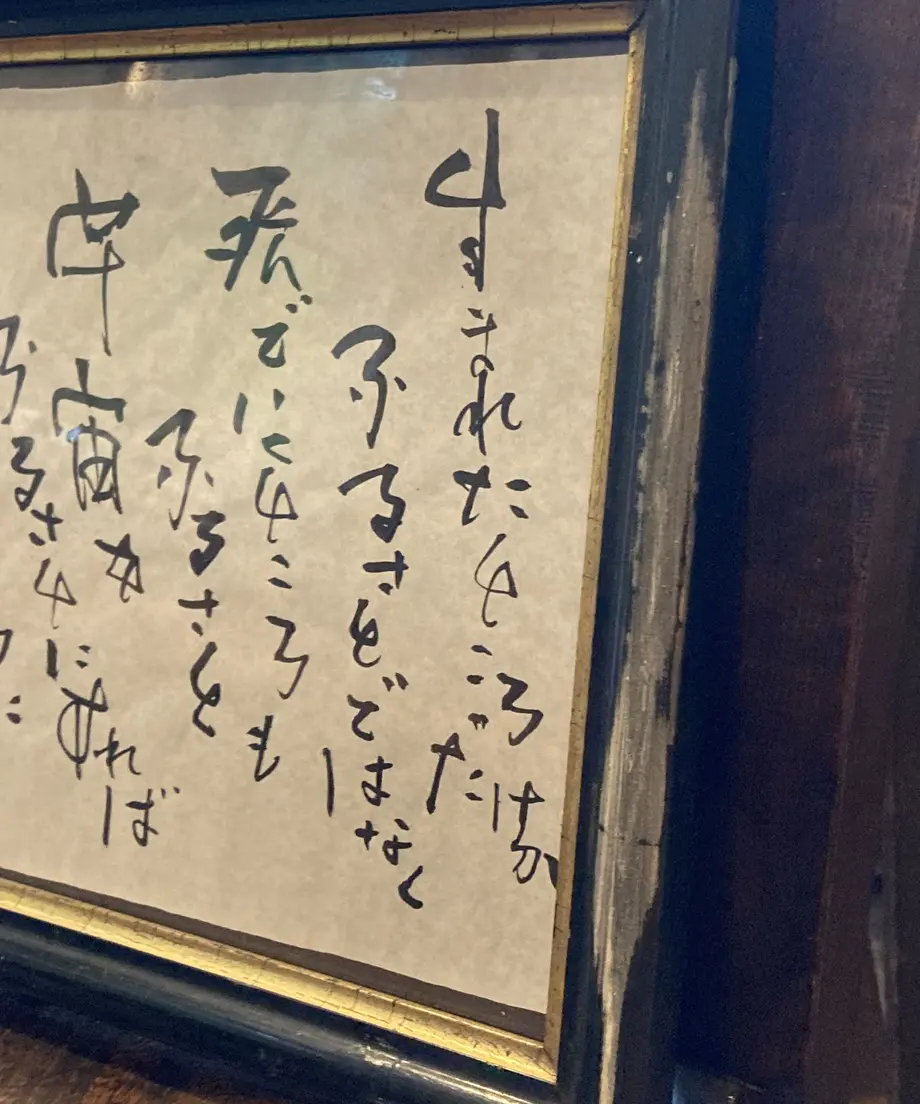 生まれたところだけが
ふるさとではなく
死んでいくところも
ふるさと
宇宙にあれば
ふるさと